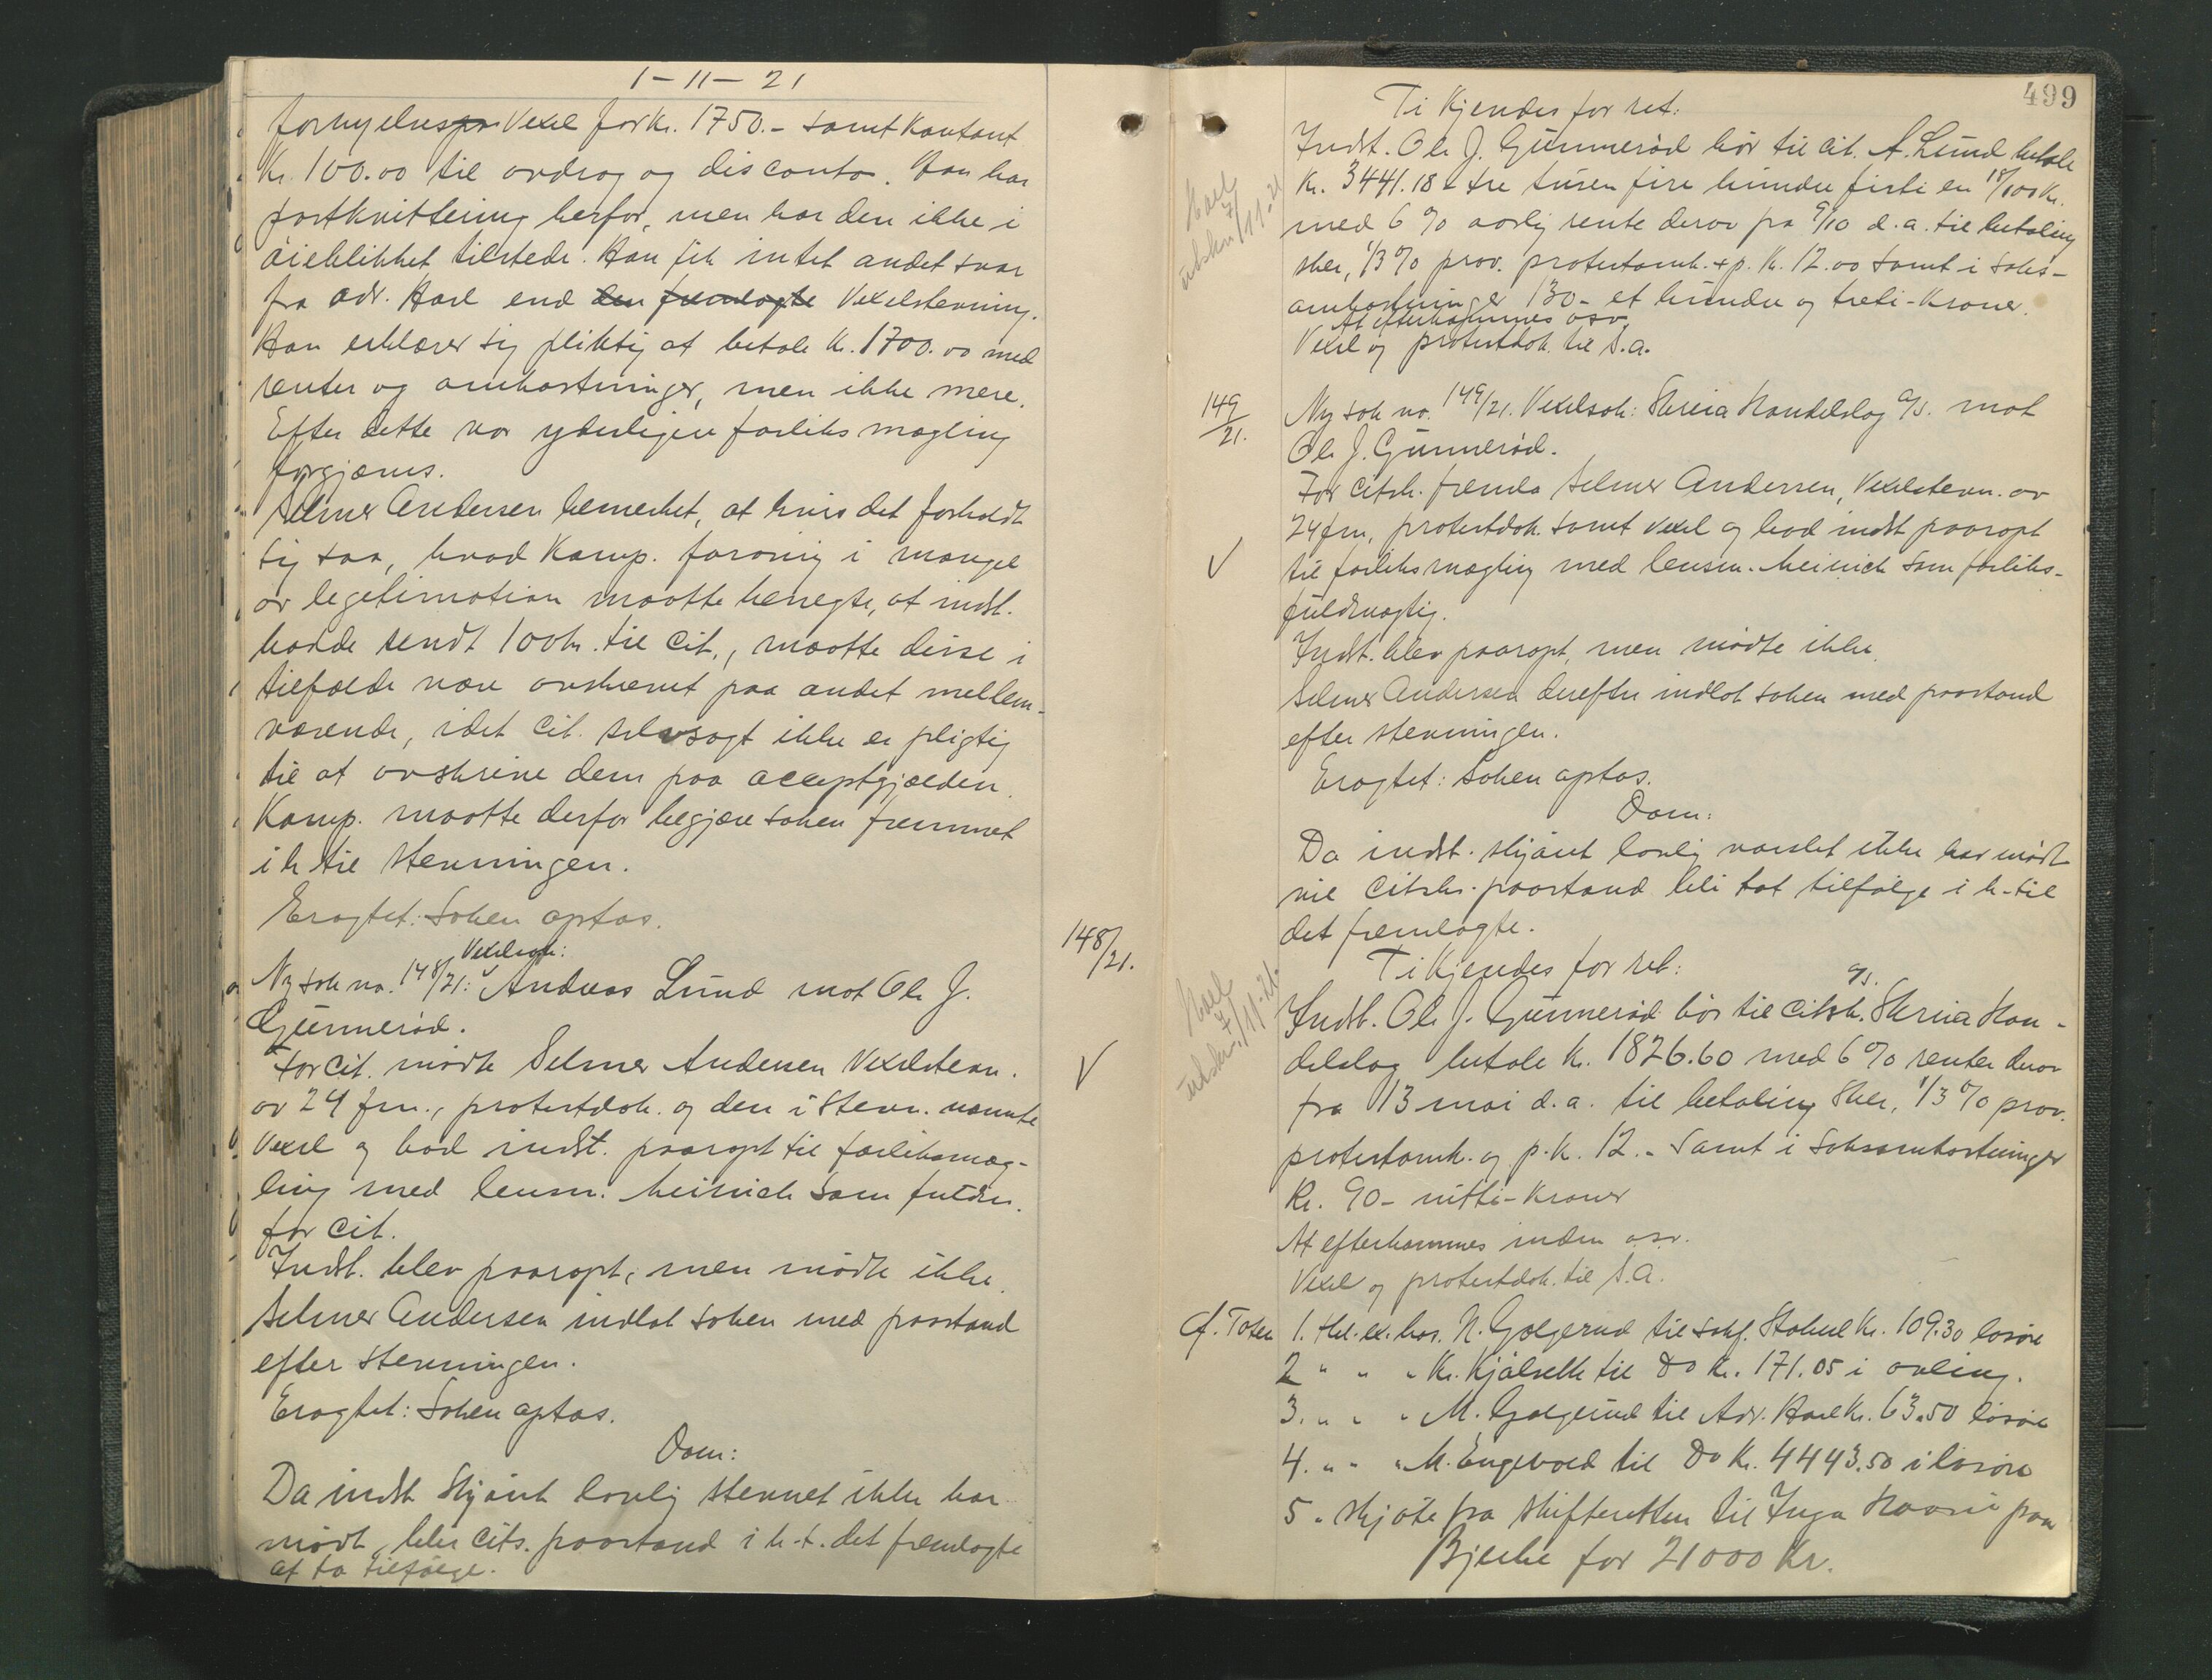 1-11-21
fornyelses Vexel for Kr. 1750.- samt kontant
Kr. 100.00 til avdrag og disconto. Han har
postkvittering herfor, men har den ikke i
øieblikket tilstede. Han fik intet andet svar
fra adv. Hoel end den fremlagte Vexelstevning.
Han erklærer sig pliktig at betale Kr. 1700.00 med
renter og omkostninger, men ikke mere.
Efter dette var yderligere forliksmægling
forgjæves.
Selmer Andersen bemerket, at hvis det forholdt
sig saa, hvad Komp. forøvrig i mangel
av legitimation maatte benegte, at indst.
hadde sendt 100 kr. til Cit., maatte disse i
tilfælde være avskrevet paa andet mellem-
værende, idet Cit. selvsagt ikke er pligtig
til at avskrive dem paa acceptgjælden.
Komp. maatte derfor begjære saken fremmet
i h. til stevningen.
Eragtet: Saken optas.
Vexelsak:
Ny sak no. 148/21: Andreas Lund mot Ole J.
Gunnerød.
148/21.
For Cit. mødte Selmer Andersen Vexelstevn.
av 24 f.m., protestdok. og den i Stevn. nævnte
Vexel og bad indst. paaropt til forliksmæg-
ling med lensm. Meinich som fuldm.
for Cit.
V
Indst. blev paaropt, men mødte ikke.
Selmer Andersen indlot saken med paastand
efter stevningen.
Eragtet: Saken optas.
Dom:
Da indst. skjønt lovlig stevnet ikke har
mødt, blir Cits. paastand i h.t. det fremlagte
at ta tilfølge.
499
Ti Kjendes for ret:
Indst. Ole J. Gunnerød bør til Cit. A. Lund betale
Kr. 3441.18 tre tusen fire hundre firti en 18/100 Kr.
med 6 % aarlig rente derav fra 9/10 d.a. til betaling
sker, 1/3 % prov. protestomk. + p. Kr. 12.00 samt i saks-
omkostninger 130- et hundre og treti-Kroner.
At efterkommes osv.
Vexel og protestdok. til S.A.
Hoel
7/11.21
utskr.
149/21.
Ny sak no. 149/21. Vexelsak: Skreia Handelslag A/S. mot
Ole J. Gunnerød.
For Citsk. fremla Selmer Andersen, Vexelstevn. av
24 f.m., protestdok. samt vexel og bad indst. paaropt
til forliksmægling med lensm. Meinich som forliks-
fuldmægtig.
V
Indst. blev paaropt, men mødte ikke.
Selmer Andersen derefter indlot saken med paastand
efter stevningen.
Eragtet: Saken optas.
Dom:
Da indst. skjønt lovlig varslet ikke har mødt
vil Citsks. paastand bli tat tilfølge i h. til
det fremlagte.
Ti Kjendes for ret:
Indst. Ole J. Gunnerød bør til Citsk. A/S. Skreia Han-
delslag betale Kr. 1826.60 med 6 % renter derav
fra 13 mai d.a. til betaling Sker, 1/3 % prov.
protestomk. og p. Kr. 12.- samt i Saksomkostninger
Kr. 90- nitti-Kroner
At efterkommes inden osv.
Vexel og protestdok. til S.A.
Hoel
7/11.21.
utskr.
Cf. Toten 1. Utl. ex. hos. N. Gælgerud til sakf. Stabul Kr. 109.30 løsøre
2 " " " Kr. Kjølseth til do Kr. 171.05 i avling.
3. " " " M. Gælgerud til Adv. Hoel Kr. 63.50 løsøre
4. " " " M. Engevold til do Kr. 4443.50 i løsøre
5. Skjøte fra skifteretten til Inga paa
Bjerke for 21000 Kr.